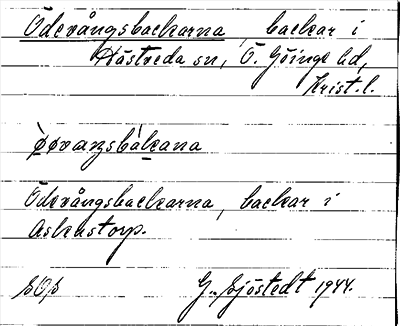 Ödevångsbackarna, backar i
Hästveda sn, Ö. Göinge hd,
Krist. l.
Ødevångsbackarna, backar i
Askastorp.
G. Sjöstedt 1944.